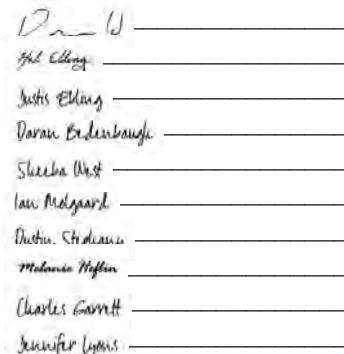 Elling
Justis Elling
Daran Bedenbaugh
Sheeba West
Ian Molgaard
Dustin
Melanie Heflin
Charles Garrett
Jennifer Lyons